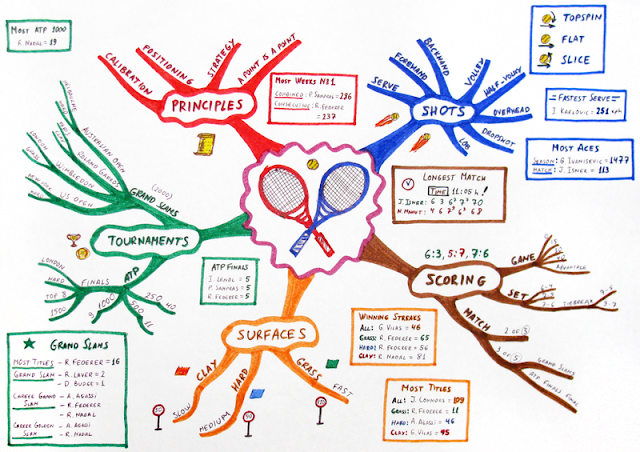 MOST ATP 1000
R. NADAL = 19
CALIBRATION
POSITIONING
STRATEGY
A POINT IS A POINT
PRINCIPLES
MOST WEEKS NR1
COMBINED: P. SAMPRAS = 286
CONSECUTIVE: R. FEDERER = 237
SERVE
FOREHAND
BACKHAND
VOLLEY
HALF-VOLLEY
OVERHEAD
DROPSHOT
LOB
SHOTS
TOPSPIN
FLAT
SLICE
FASTEST SERVE
I. KARLOVIC: 251
MOST ACES
SEASON: G. IVANISEVIC = 1477
MATCH: J. ISNER = 113
LONGEST MATCH
TIME: 11:05 h !
J. ISNER: 6 3 6 7 70
N. MAHUT: 4 6 7 6 68
6:3, 5:7, 7:6
SCORING
GAME
ADVANTAGE
SET
TIEBREAK
MATCH
2 OF 3
3 OF 5
GRAND SLAMS
ATP FINALS FINAL
AUSTRALIAN OPEN
ROLAND GARROS
WIMBLEDON
US OPEN
GRAND SLAMS
(2000)
TOURNAMENTS
ATP
FINALS
LONDON
HARD
TOP 8
1500
1000
9
500
11
250
40
ATP FINALS
I. LENDL = 5
P. SAMPRAS = 5
R. FEDERER = 5
GRAND SLAMS
MOST TITLES – R. FEDERER = 16
GRAND SLAM – R. LAVER = 2
– D. BUDGE = 1
CAREER GRAND SLAM – A. AGASSI
– R. FEDERER
– R. NADAL
CAREER GOLDEN SLAM – A. AGASSI
– R. NADAL
SURFACES
CLAY
SLOW
HARD
MEDIUM
GRASS
FAST
WINNING STREAKS
ALL: G. VILAS = 46
GRASS: R. FEDERER = 65
HARD: R. FEDERER = 56
CLAY: R. NADAL = 81
MOST TITLES
ALL: J. CONNORS = 109
GRASS: R. FEDERER = 11
HARD: A. AGASSI = 46
CLAY: G. VILAS = 45